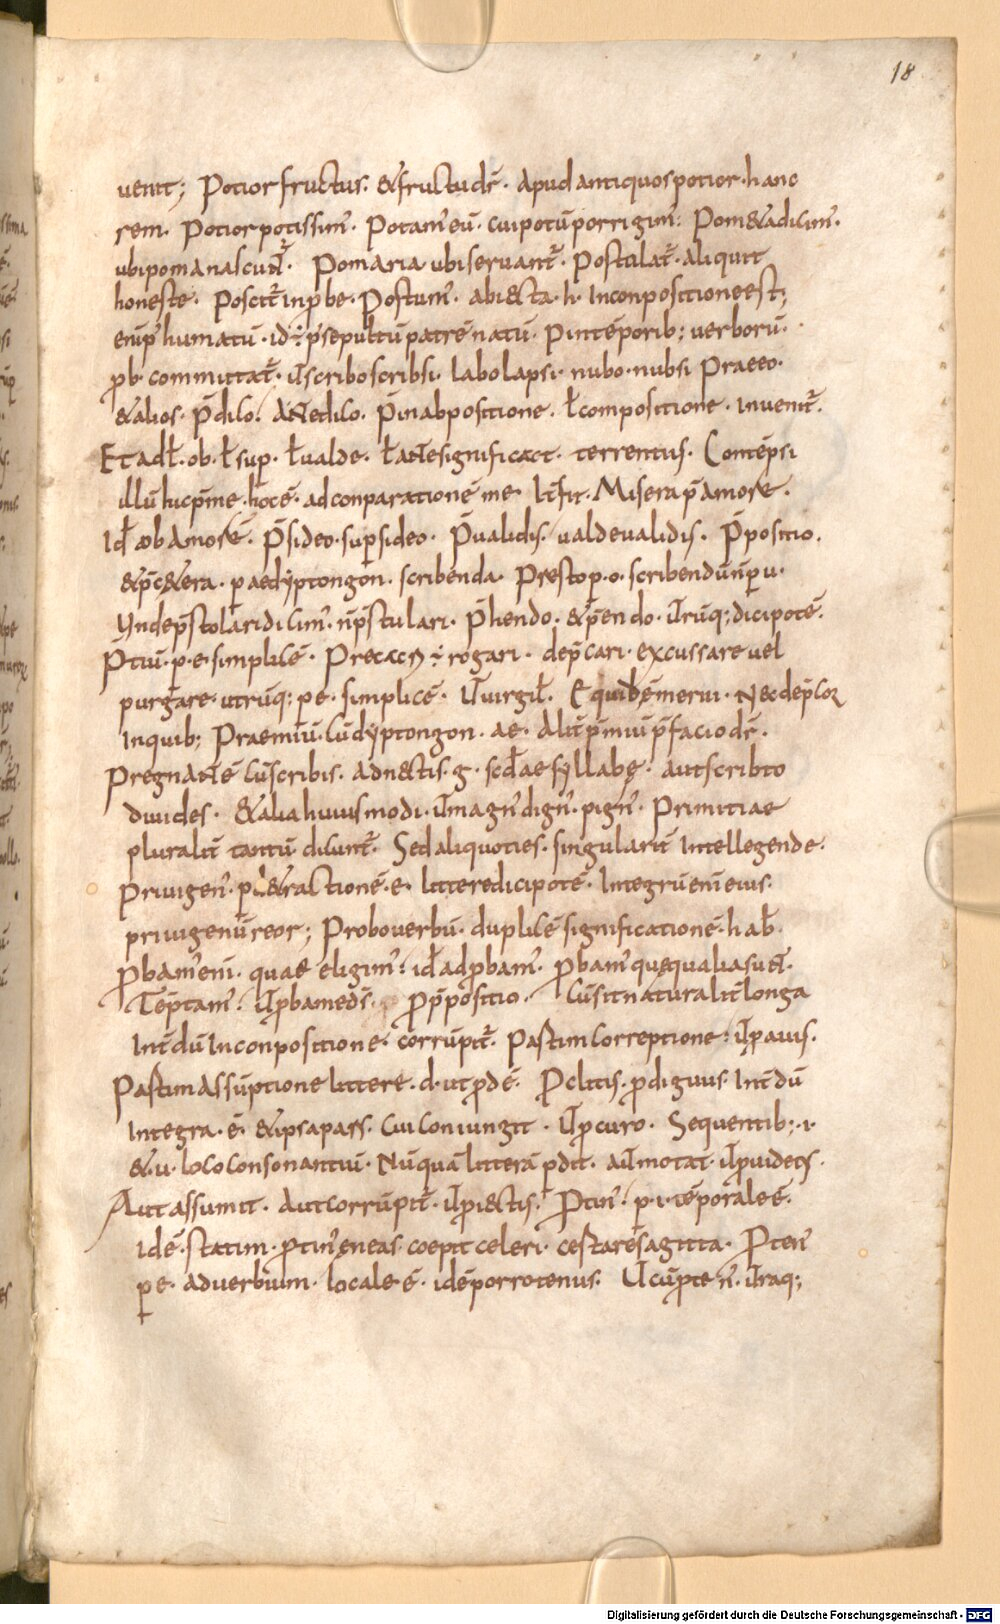 18
uenit; Potior fructus. & fructu dr̄. apud antiquos potior. hanc
rem. Potior potissim̄. Potam̄ eū. cui potū porrigim̄: Pom&a dicim̄.
ubi poma nascunt̄. Pomaria ubi seruant̄. Postulat̄. aliquit
honeste. Poscit̄ inprobe. Postum̄. abiecta. h. Inconpositione est;
humatū. id ÷ p̄ sepultū patrē natū. tēporib; uerborū.
ꝓb committat̄. ut̄ scribo scribsi. labo lapsi. nubo. nubsi Praeeo.
& alios. p̄dilo. antedilo. P̄ in abpositione. ł compositione. inuenit̄.
Et ad ł. ob. ł sup. ł ualde. ł ante significat. terrentius. Contēpsi
illū hic p̄ me. hoc ē. ad conparationē me Misera p̄ amore.
Id̄ ob amorē. P̄sideo. supsideo. P̄ualidis. ualde ualidis. P̄positio.
&p̄c&era. p ae dyptongon. scribenda. Presto p. o. scribendū n̄ p u.
Unde p̄stolari dicim̄. n̄ p̄stulari. P̄hendo. & p̄endo. utrūq; dici potē.
P̄tiū. p. e. simplicē. Precari ÷ rogari. dep̄cari. excussare uel
purgare. utrūq; p e. simplicē. ut̄ uirgil̄. Equidē merui. Nec dep̄cor
inquid; Praemiū. cū dyptongon. ae. Alit̄ p̄miū p̄facio dr̄.
Pregnantē cū scribis. adnectis. g. scd̄ae syllabe. aut scribto
diuides. & alia huiusmodi. ut̄ magn̄ dign̄. pign̄. Primitiae
pluralit̄ tantū dicunt̄. Sed aliquoties. singularit̄ intellegende.
Priuigen̄. p detractionē. e. littere dici potē. Integrū eni eius.
priuigenū reor; Probo uerbū. duplicē significationē. hab̄.
Ꝓbam̄ eni. quae eligim̄: id̄ adꝓbam̄. Ꝓbam̄ que qualia sunt.
Tēptam̄. ut̄ ꝓbame ds̄. Ꝓ p̄positio. Cū sit naturalit̄ longa
Int̄dū inconpositione. corrūpit̄. Pastim correptione: ut̄ ꝓauis.
Pastim assūptione littere. d. ut ꝓdē. Ꝓclitis. ꝓdiguus. Int̄dū
integra. ē. & ipsa pars. cui coniungit. ut̄ ꝓcuro. Sequentib;. i.
& u. loco consonantiū. Nūquā litterā pdit. aut̄ motat. ut̄ ꝓuidens.
Aut assumit. aut corrūpit̄. ut̄ ꝓiectis. Ꝓtin̄. p. i. tēporale ē.
id ē. statim. ꝓtin̄ eneas coepit celeri. certare sagitta. Ꝓten̄
p e. aduerbium. locale ē. id ē porro tenus. ut̄raq;